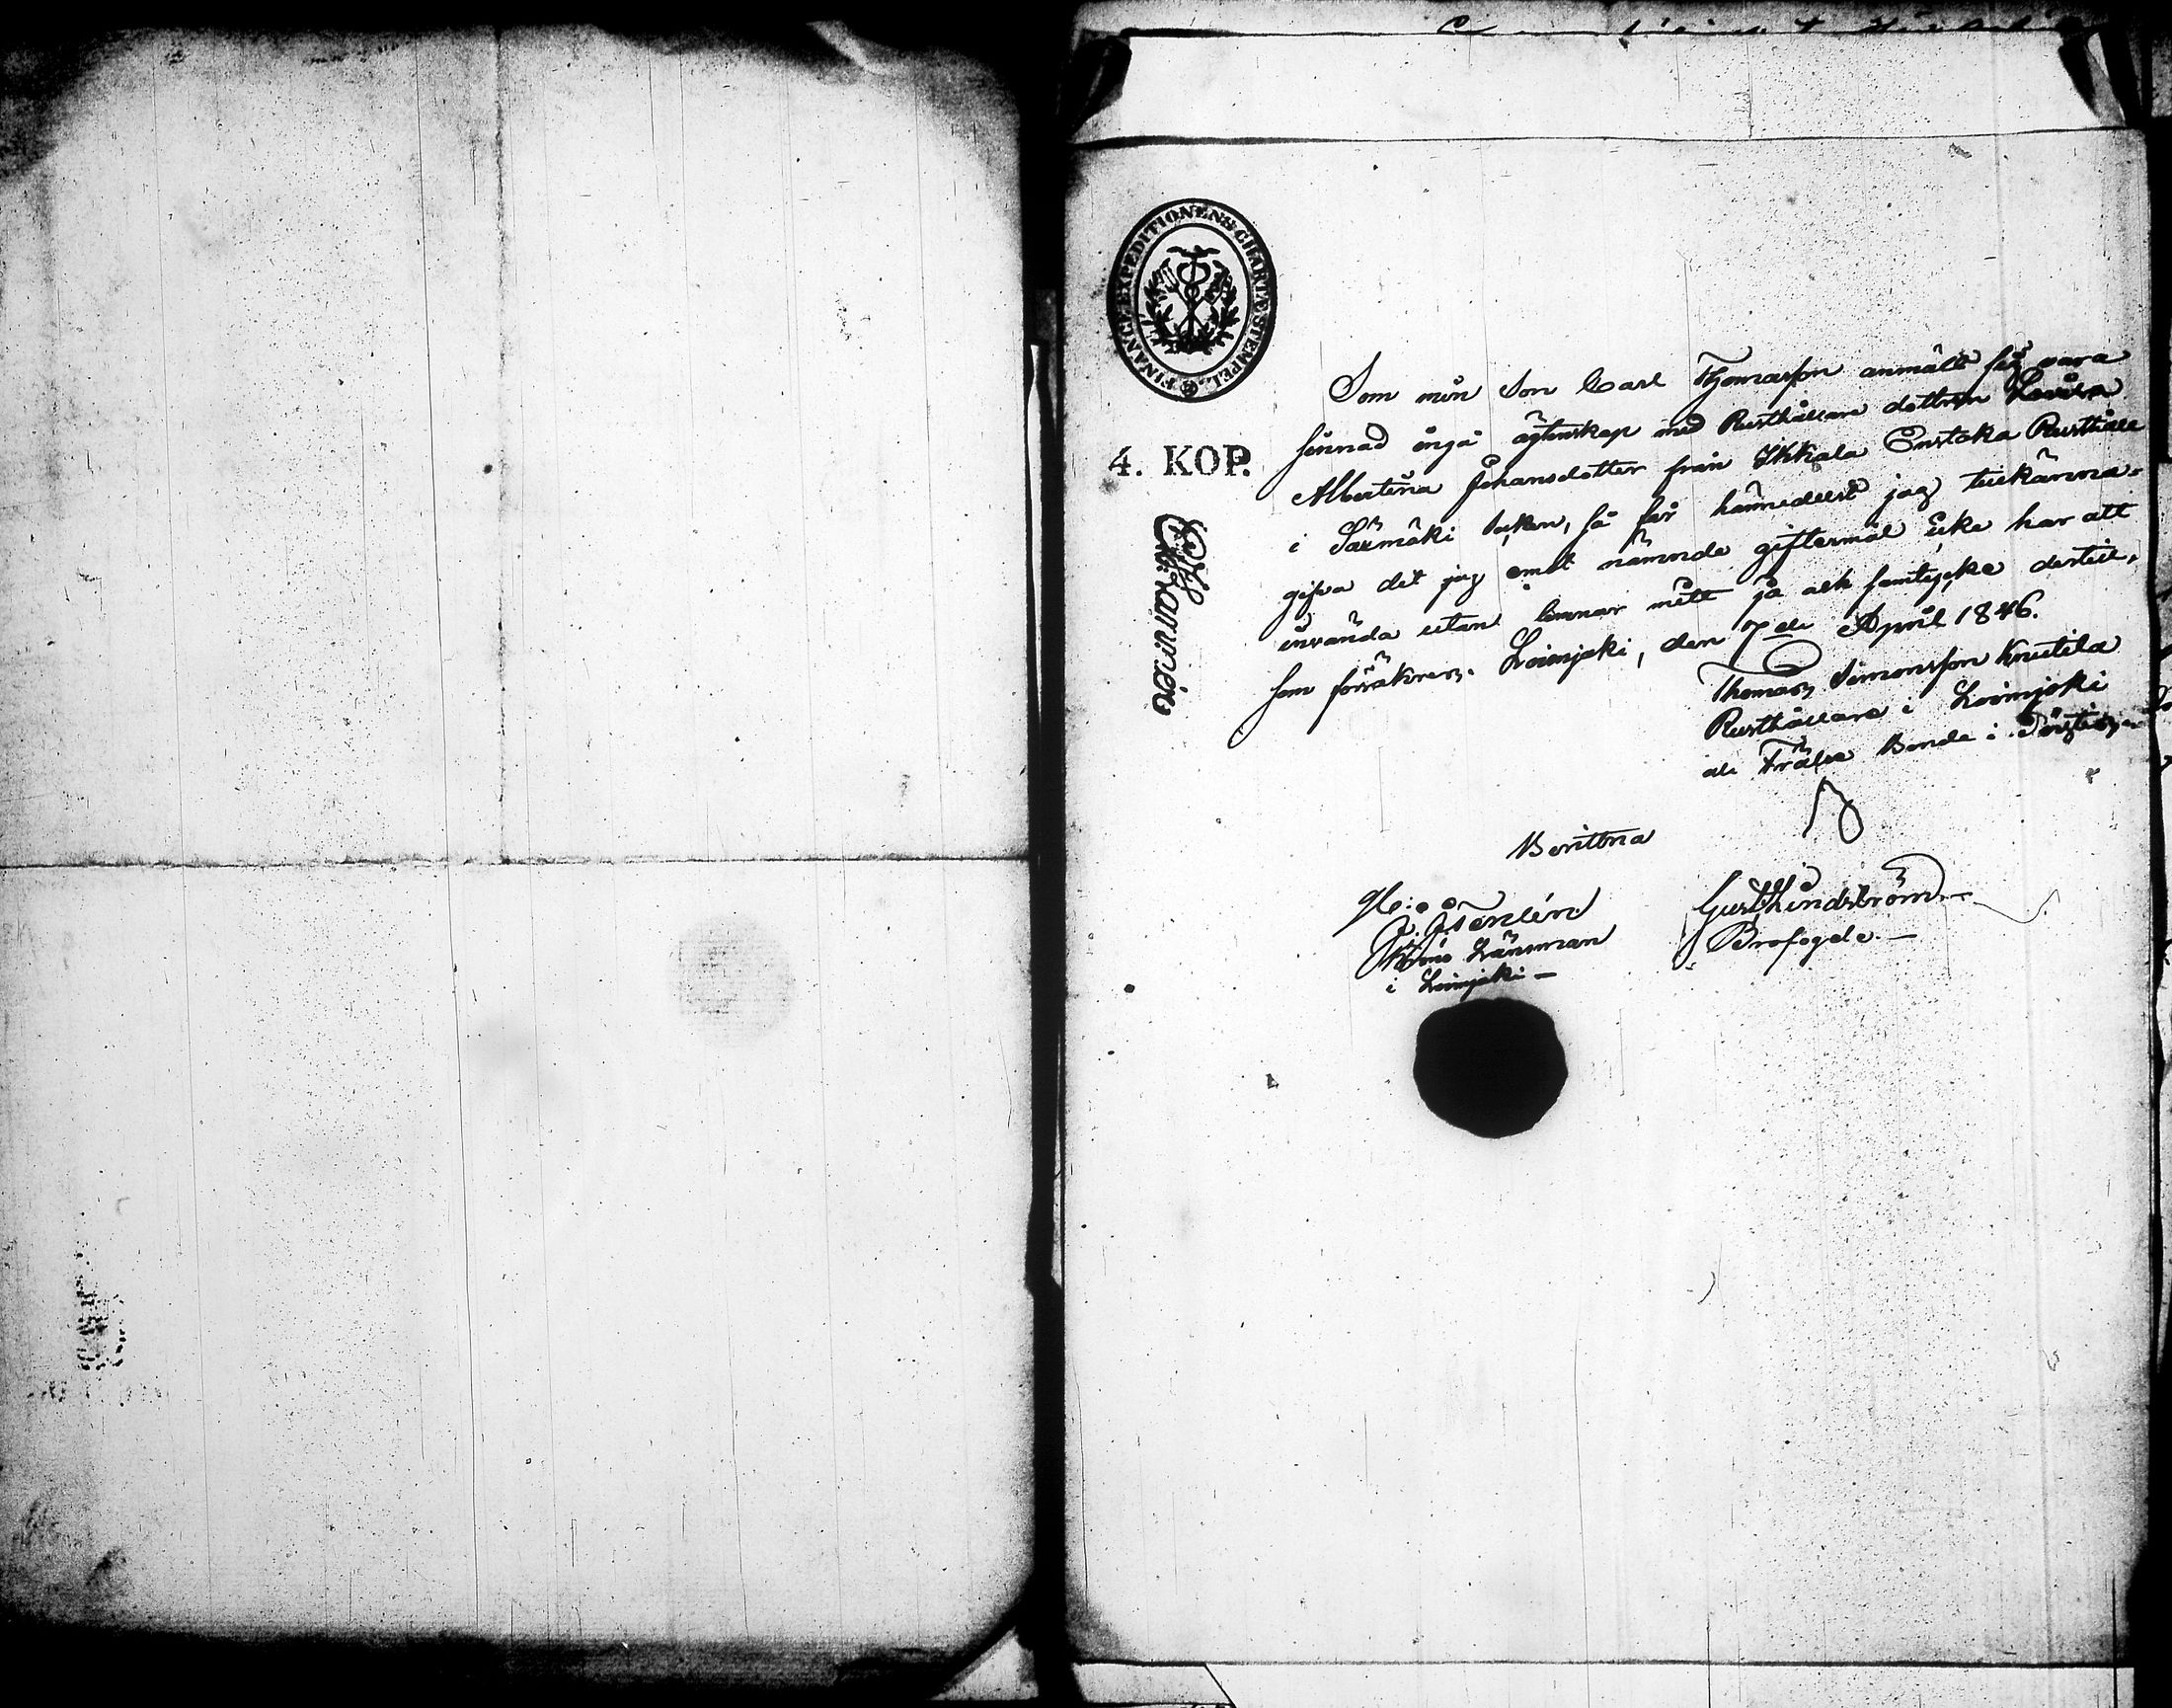 FINANCE EXPEDITIONENS CHARTÆ STEMPEL
4. KOP.
Som min Son Carl Thomasson anmält sig vara
sinnad ingå ägtenskap med Rusthållare dottren Lovisa
Albertina Johansdotter från Ikkala Enstaka Rusthåll
i Särmäki Soken, så får härmedelst jag tillkänna-
gifva det jag emot nämnde giftermål icke har att
invända utan lemnar mitt ja och samtycke dertill,
som försäkras. Loimjoki, den 7de April 1846.
Thomas Simonsson Knutila
Rusthållare i Loimjoki
och Frälse Bonde i
Bevittna
Krono Länsman
i Loimjoki —
Gust Lindström
Brofogde. —